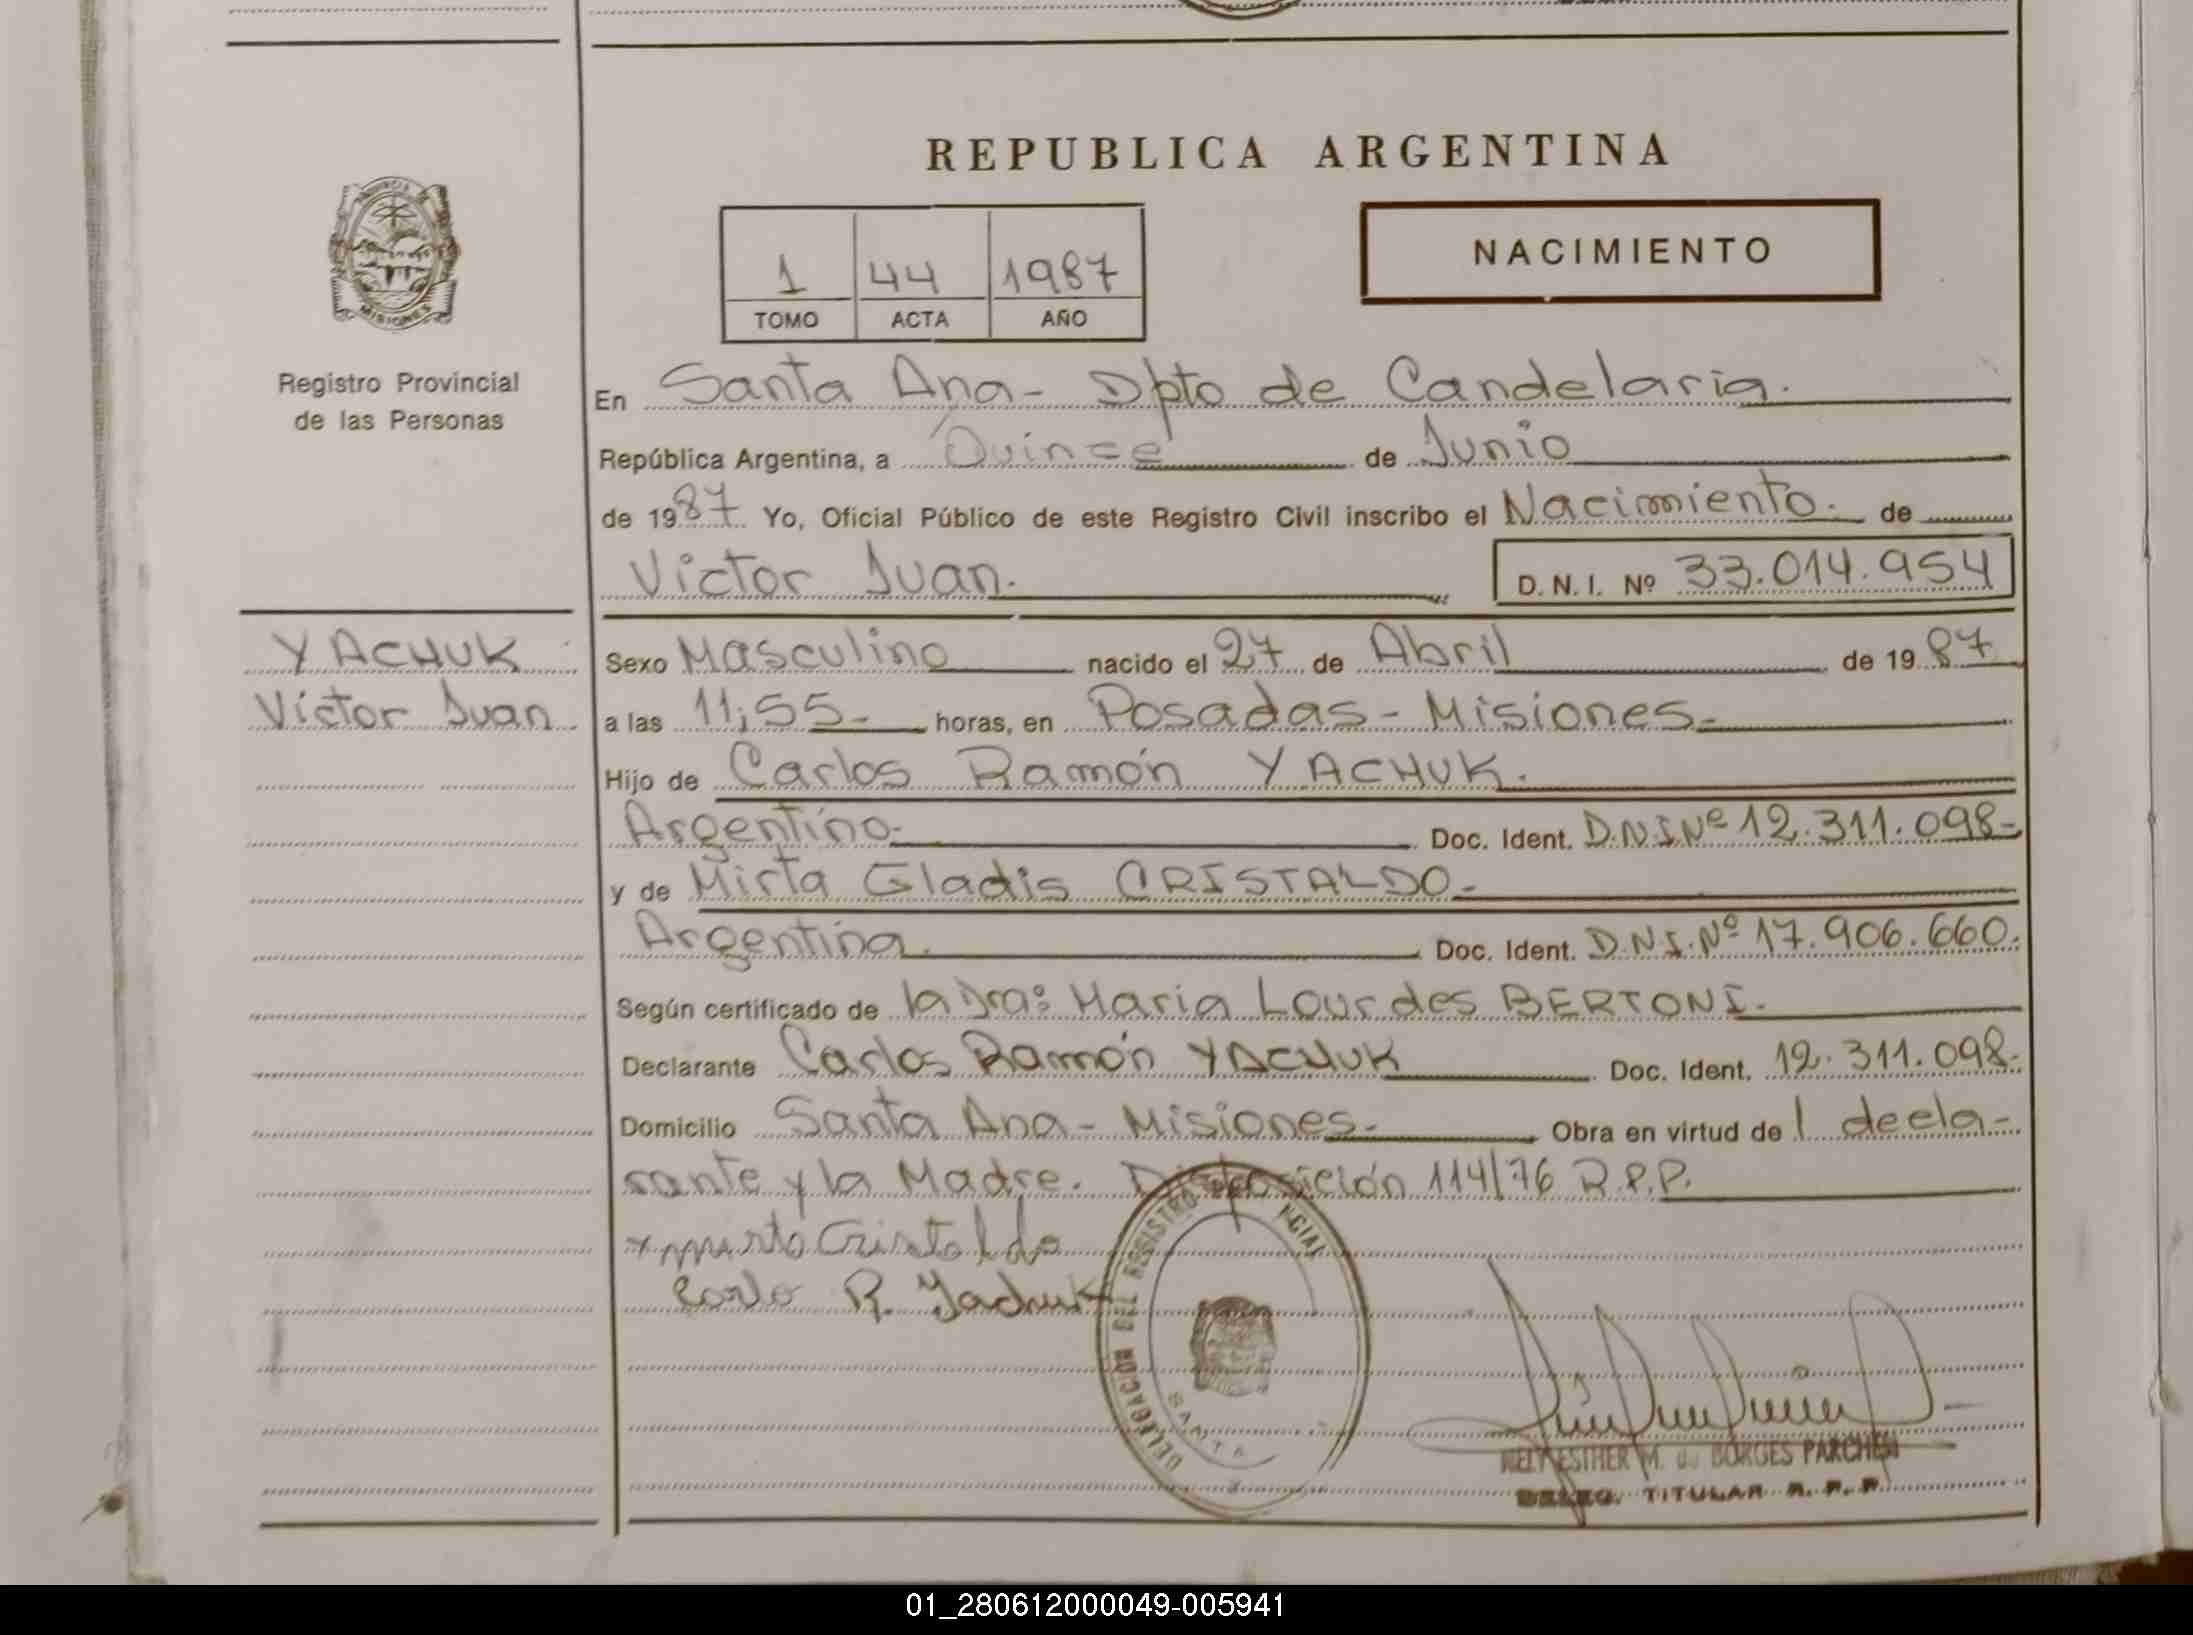 REPUBLICA ARGENTINA
NACIMIENTO
1 44 1987
TOMO ACTA AÑO
PROVINCIA DE
MISIONES
Registro Provincial
de las Personas
En Santa Ana- Dpto de Candelaria.
República Argentina, a Quince de Junio
de 1987 Yo, Oficial Público de este Registro Civil inscribo el Nacimiento. de
Victor Juan.
D. N. I. Nº 33.014.954
YACHUK
Víctor Juan
Sexo Masculino nacido el 27 de Abril de 1987
a las 11;55- horas, en Posadas-Misiones-
Hijo de Carlos Ramón YACHUK.
Argentino- Doc. Ident. D.N.I.Nº 12.311.098-
y de Mirta Gladis CRISTALDO-
Argentina. Doc. Ident. D.N.I.Nº 17.906.660.
Según certificado de la Dra: Maria Lourdes BERTONI.
Declarante Carlos Ramón YACHUK Doc. Ident. 12.311.098.
Domicilio Santa Ana-Misiones- Obra en virtud de l decla-
rante y la Madre. Disposición 114/76 R.P.P.
x Mirta Cristaldo
Carlo R. Yachuk
DELEGACION DEL REGISTRO
SANTA
NELY ESTHER M. de BORGES PARCHEN
DELEG. TITULAR R. P. P.
01_280612000049-005941